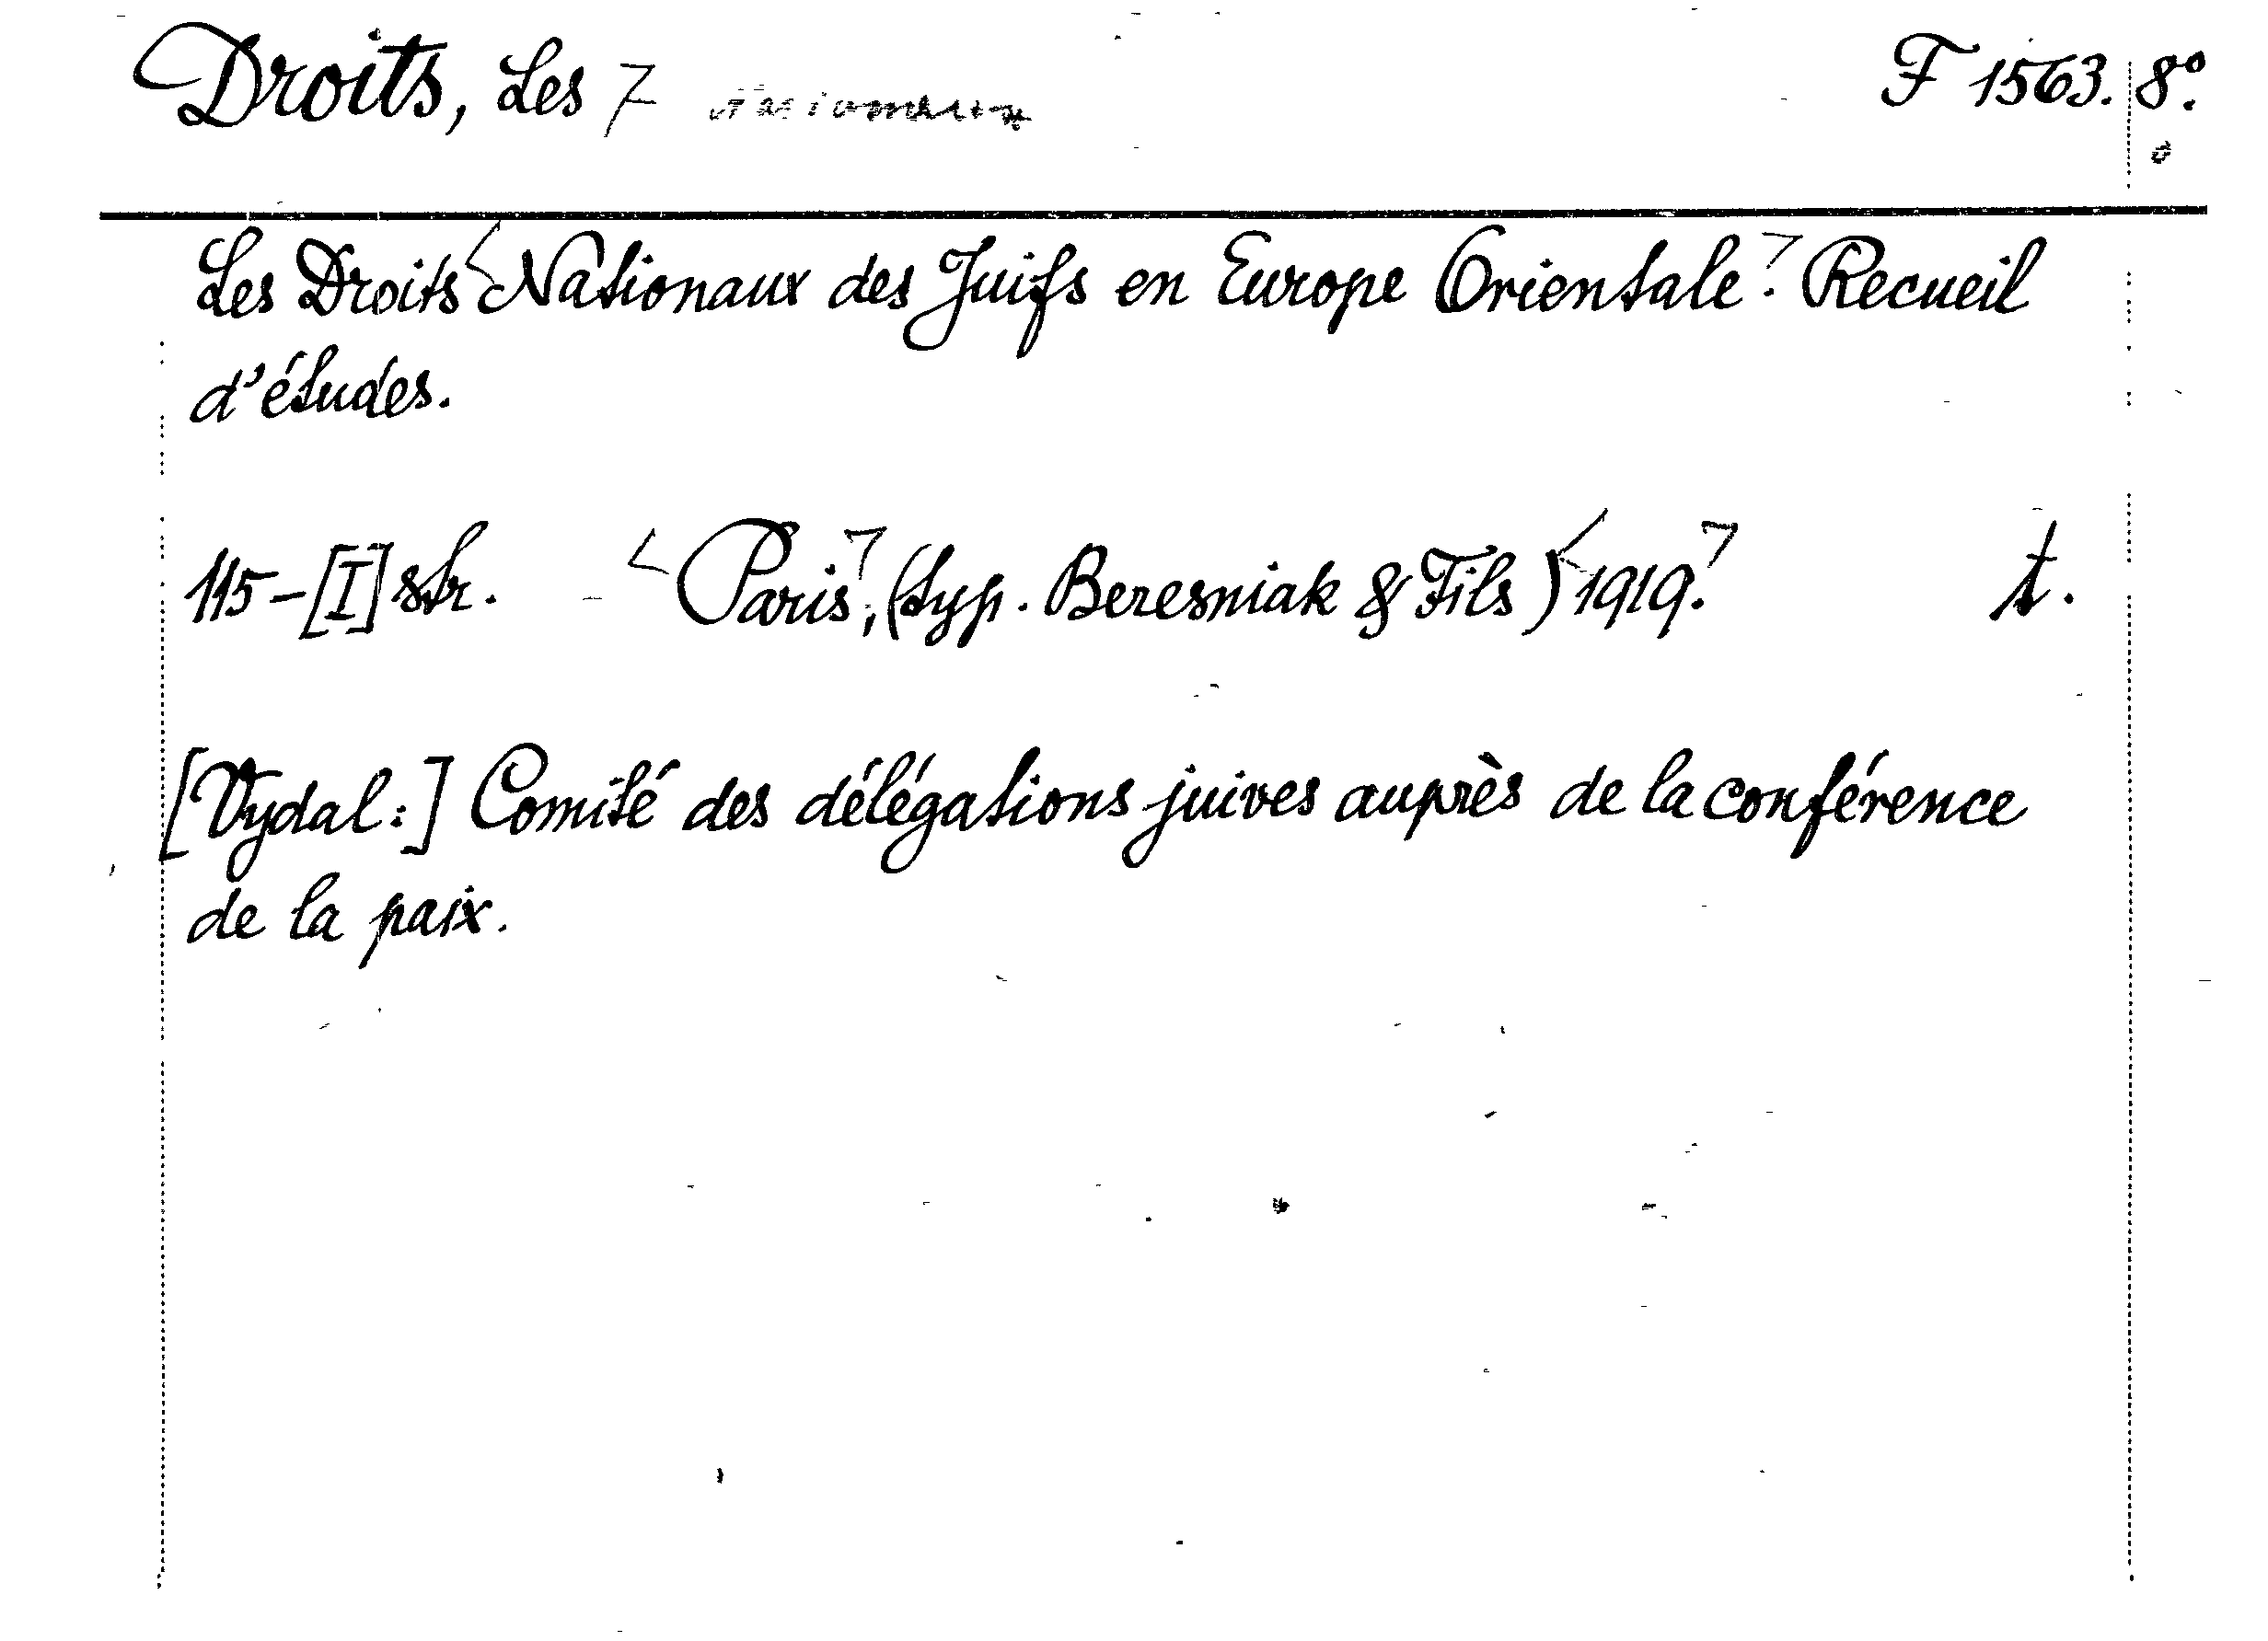 Droits, Les nationaux F 1563. 8º.
Les Droits Nationaux des Juifs en Europe Orientale. Recueil
d'études.
115-[I] str. Paris, (typ. Beresniak & Fils) 1919. t.
[Vydal:] Comité des délégations juives auprès de la conférence
de la paix.